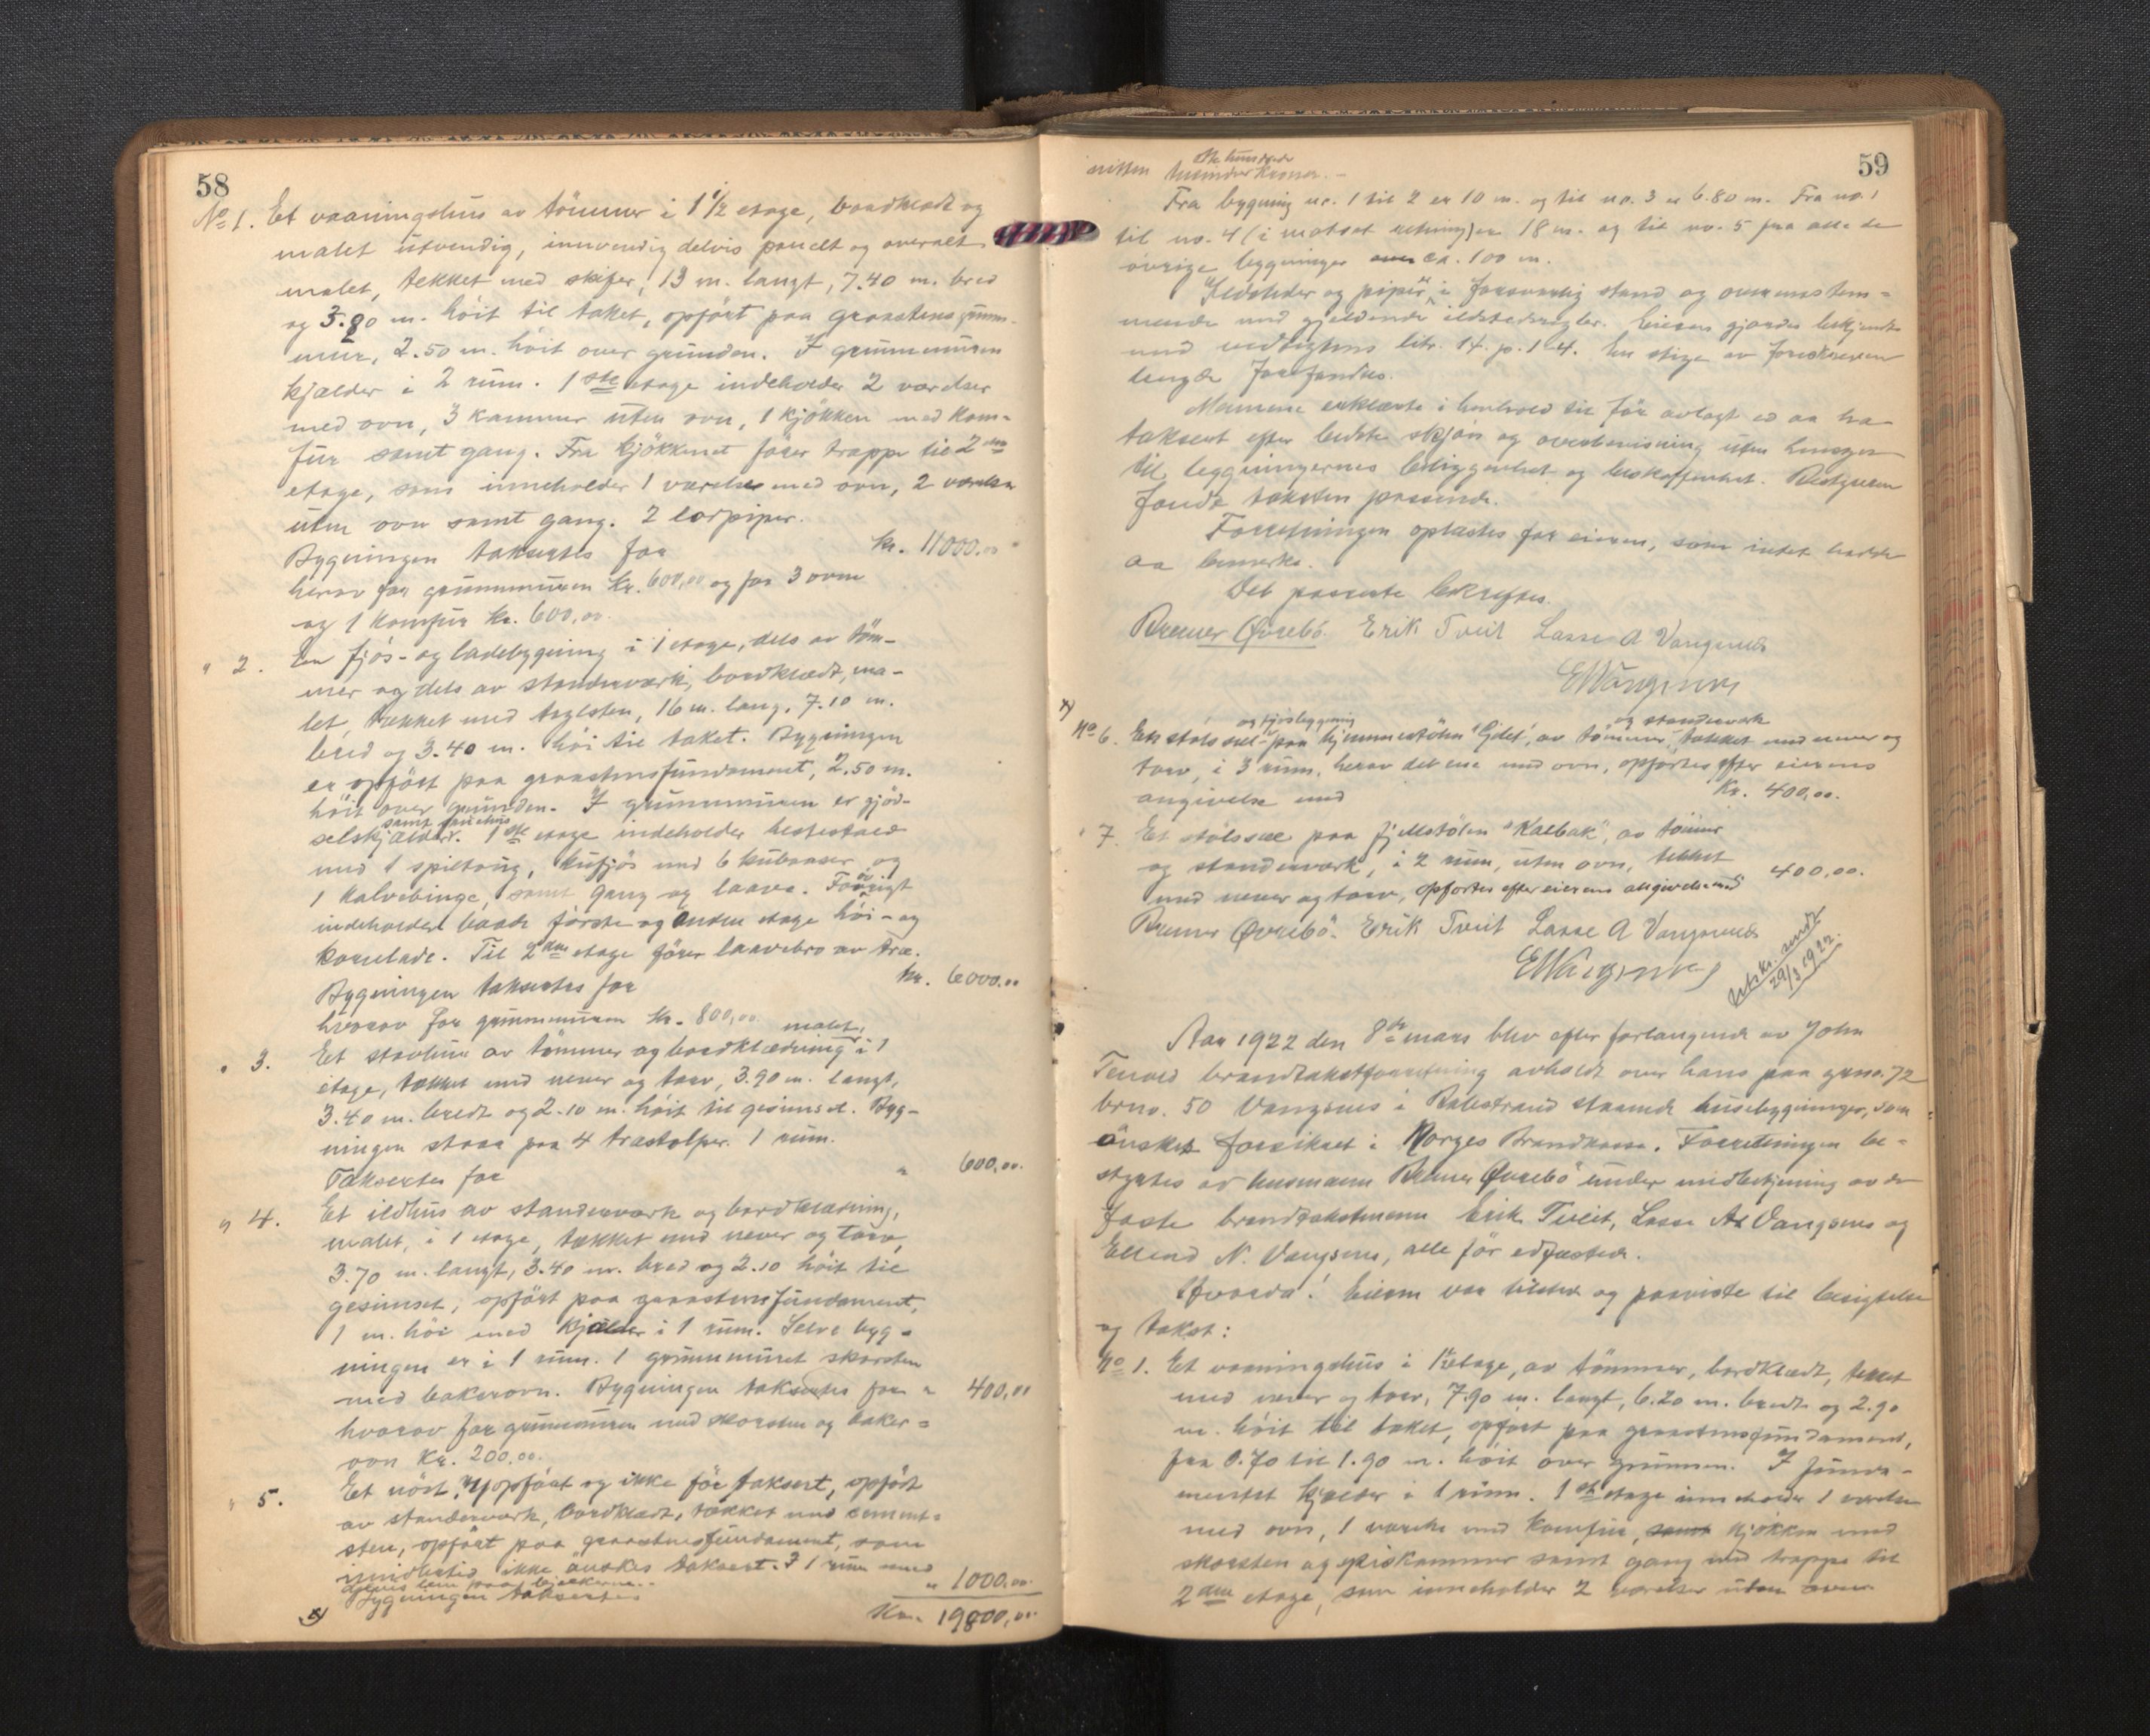 58
No 1. Et vaaningshus av tömmer i 1 1/2 etage, bordklædt og
malet utvendig, innvendig delvis panelt og overalt
malet, tekket med skifer, 13 m. langt, 7.40 m. bred
og 3.80 m. höit til taket, opfört paa graastens grunn-
mur, 2.50 m. höit over grunden. I grunnmuren
kjælder i 2 rum. 1ste etage indeholder 2 værelser
med ovn, 3 kammer uten ovn, 1 kjökken med kom-
fur samt gang. Fra kjökkenet förer trappe til 2den
etage, som inneholder 1 værelse med ovn, 2 værelser
uten ovn samt gang. 2 piper.
Bygningen takseres for kr. 11000.00
herav for grunnmuren kr. 600,00 og for 3 ovne
og 1 komfur kr. 600,00.
" 2. En fjös- og ladebygning i 1 etage, dels av töm-
mer og dels av standerværk, bordklædt, ma-
let, tekket med teglsten, 16 m. lang, 7.10 m.
bred og 3.40 m. höi til taket. Bygningen
er opfört paa graastensfundament, 2.50 m.
höit over grunden. I grunnmuren er gjöd-
selskjælder samt 1ste etage indeholder hestestald
med 1 spiltaug, kufjös med 6 kubaaser og
1 kalvebinge, samt gang og laave. Forövrigt
indeholder baade förste og anden etage höi- og
kornlade. Til 2den etage förer laavebro av træ.
Bygningen takseres for kr. 6000.00
hvorav for grunnmuren kr. 800,00.
" 3. Et stavhus av tömmer og bordklædning, malet, i 1
etage, tækket med never og torv, 3.90 m. langt,
3.40 m. bredt og 2.10 m. höit til gesimset. Byg-
ningen staar paa 4 træstolper. 1 rum.
Takseres for " 600,00.
" 4. Et ildhus av standerværk og bordklædning,
malet, i 1 etage, tækket med never og torv,
3.70 m. langt, 3.40 m. bred og 2.10 höit til
gesimset, opfört paa graastensfundament,
1 m. höi med kjælder i 1 rum. Selve byg-
ningen er i 1 rum. 1 grunnmuret skorsten
med bakerovn. Bygningen takseres for " 400,00
hvorav for grunnmuren med skorsten og baker-
ovn kr. 200.00.
" 5. Et nöst, nyopfört og ikke för taksert, opfört
av standerværk, bordklædt, tækket med cement-
sten, opfört paa graastensfundament, som
imidlertid ikke önskes taksert. I 1 rum med
Bygningen takseres " 1000,00.
x) Kr. 19800,00.
59
nitten tusinde otte hundrede kroner. -
Fra bygning nr. 1 til 2 er 10 m. og til no. 3 er 6.80 m. Fra no. 1
til no. 4 (i motsat retning) er 18 m. og til no. 5 fra alle de
övrige bygninger ca. 100 m.
Ildsteder og piper i forsvarlig stand og overensstem-
mende med gjeldende ildstedsregler. Eieren gjordes bekjendt
med vedtægtens litr. 14. p. 1-4. En stige av foreskreven
længde forefandtes.
Mennene erklærte i henhold til för avlagt ed aa ha
taksert efter bedste skjön og overbevisning uten hensyn
til bygningernes beliggenhet og beskaffenhet. Bestyreren
fandt taksten passende.
Forretningen oplæstes for eieren, som intet hadde
aa bemerke.
Det passerte bekræftes.
Bremer Øvrebö. Erik Tveit Lasse A Vangsnes
E N Vangsnes
x)
No 6. En stölssel og fjösbygning paa hjemmestölen "Gilet", av tömmer og standerverk tækket med never og
torv, i 3 rum, herav det ene med ovn, opförtes efter eierens
angivelse med Kr. 400,00.
" 7. Et stölssel paa fjellstölen "Kalbak", av tömmer
og standerverk, i 2 rum, uten ovn, tekket
med never og torv, opförtes efter eierens angivelse med 400,00.
Bremer Øvrebö. Erik Tveit Lasse A Vangsnes
E N Vangsnes
Utskr. sendt
29/3 1922.
Aar 1922 den 8de mars blev efter forlangende av John
Tenold brandtakstforretning avholdt over hans paa grno. 72
brno. 50 Vangsnes i Balestrand staaende husebygninger, som
önskes forsikret i Norges Brandkasse. Forretningen be-
styrtes av lensmann Bremer Øvrebö under medbetjening av de
faste brandtakstmenn Erik Tveit, Lasse A. Vangsnes og
Ellend N. Vangsnes, alle för edfæstede.
Hvorda! Eieren var tilstede og paaviste til besigtelse
og takst:
No 1. Et vaaningshus i 1 1/2 etage, av tömmer, bordklædt, tekket
med never og torv, 7.90 m. langt, 6.20 m. bredt og 2.90
m. höit til taket, opfört paa graastensfundament,
fra 0.70 til 1.90 m. höit over grunnen. I funda-
mentet kjelder i 1 rum. 1ste etage inneholder 1 værelse
med ovn, 1 værelse med komfur, samt kjökken med
skorsten og spiskammer samt gang med trappe til
2den etage, som inneholder 2 værelser uten ovn